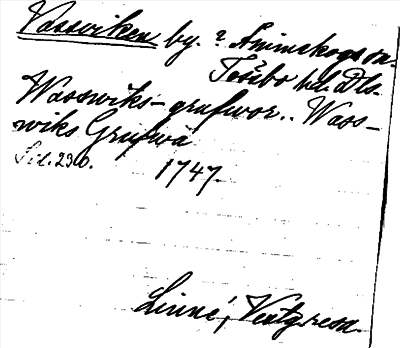 Vassviken by. ? Ånimskogs sn.
Tössbo hd. Dls.
Wasswiks-grufwor.. Wass-
wiks Grufwa
Sid. 230. 1747.
Linné, Västg.resa.